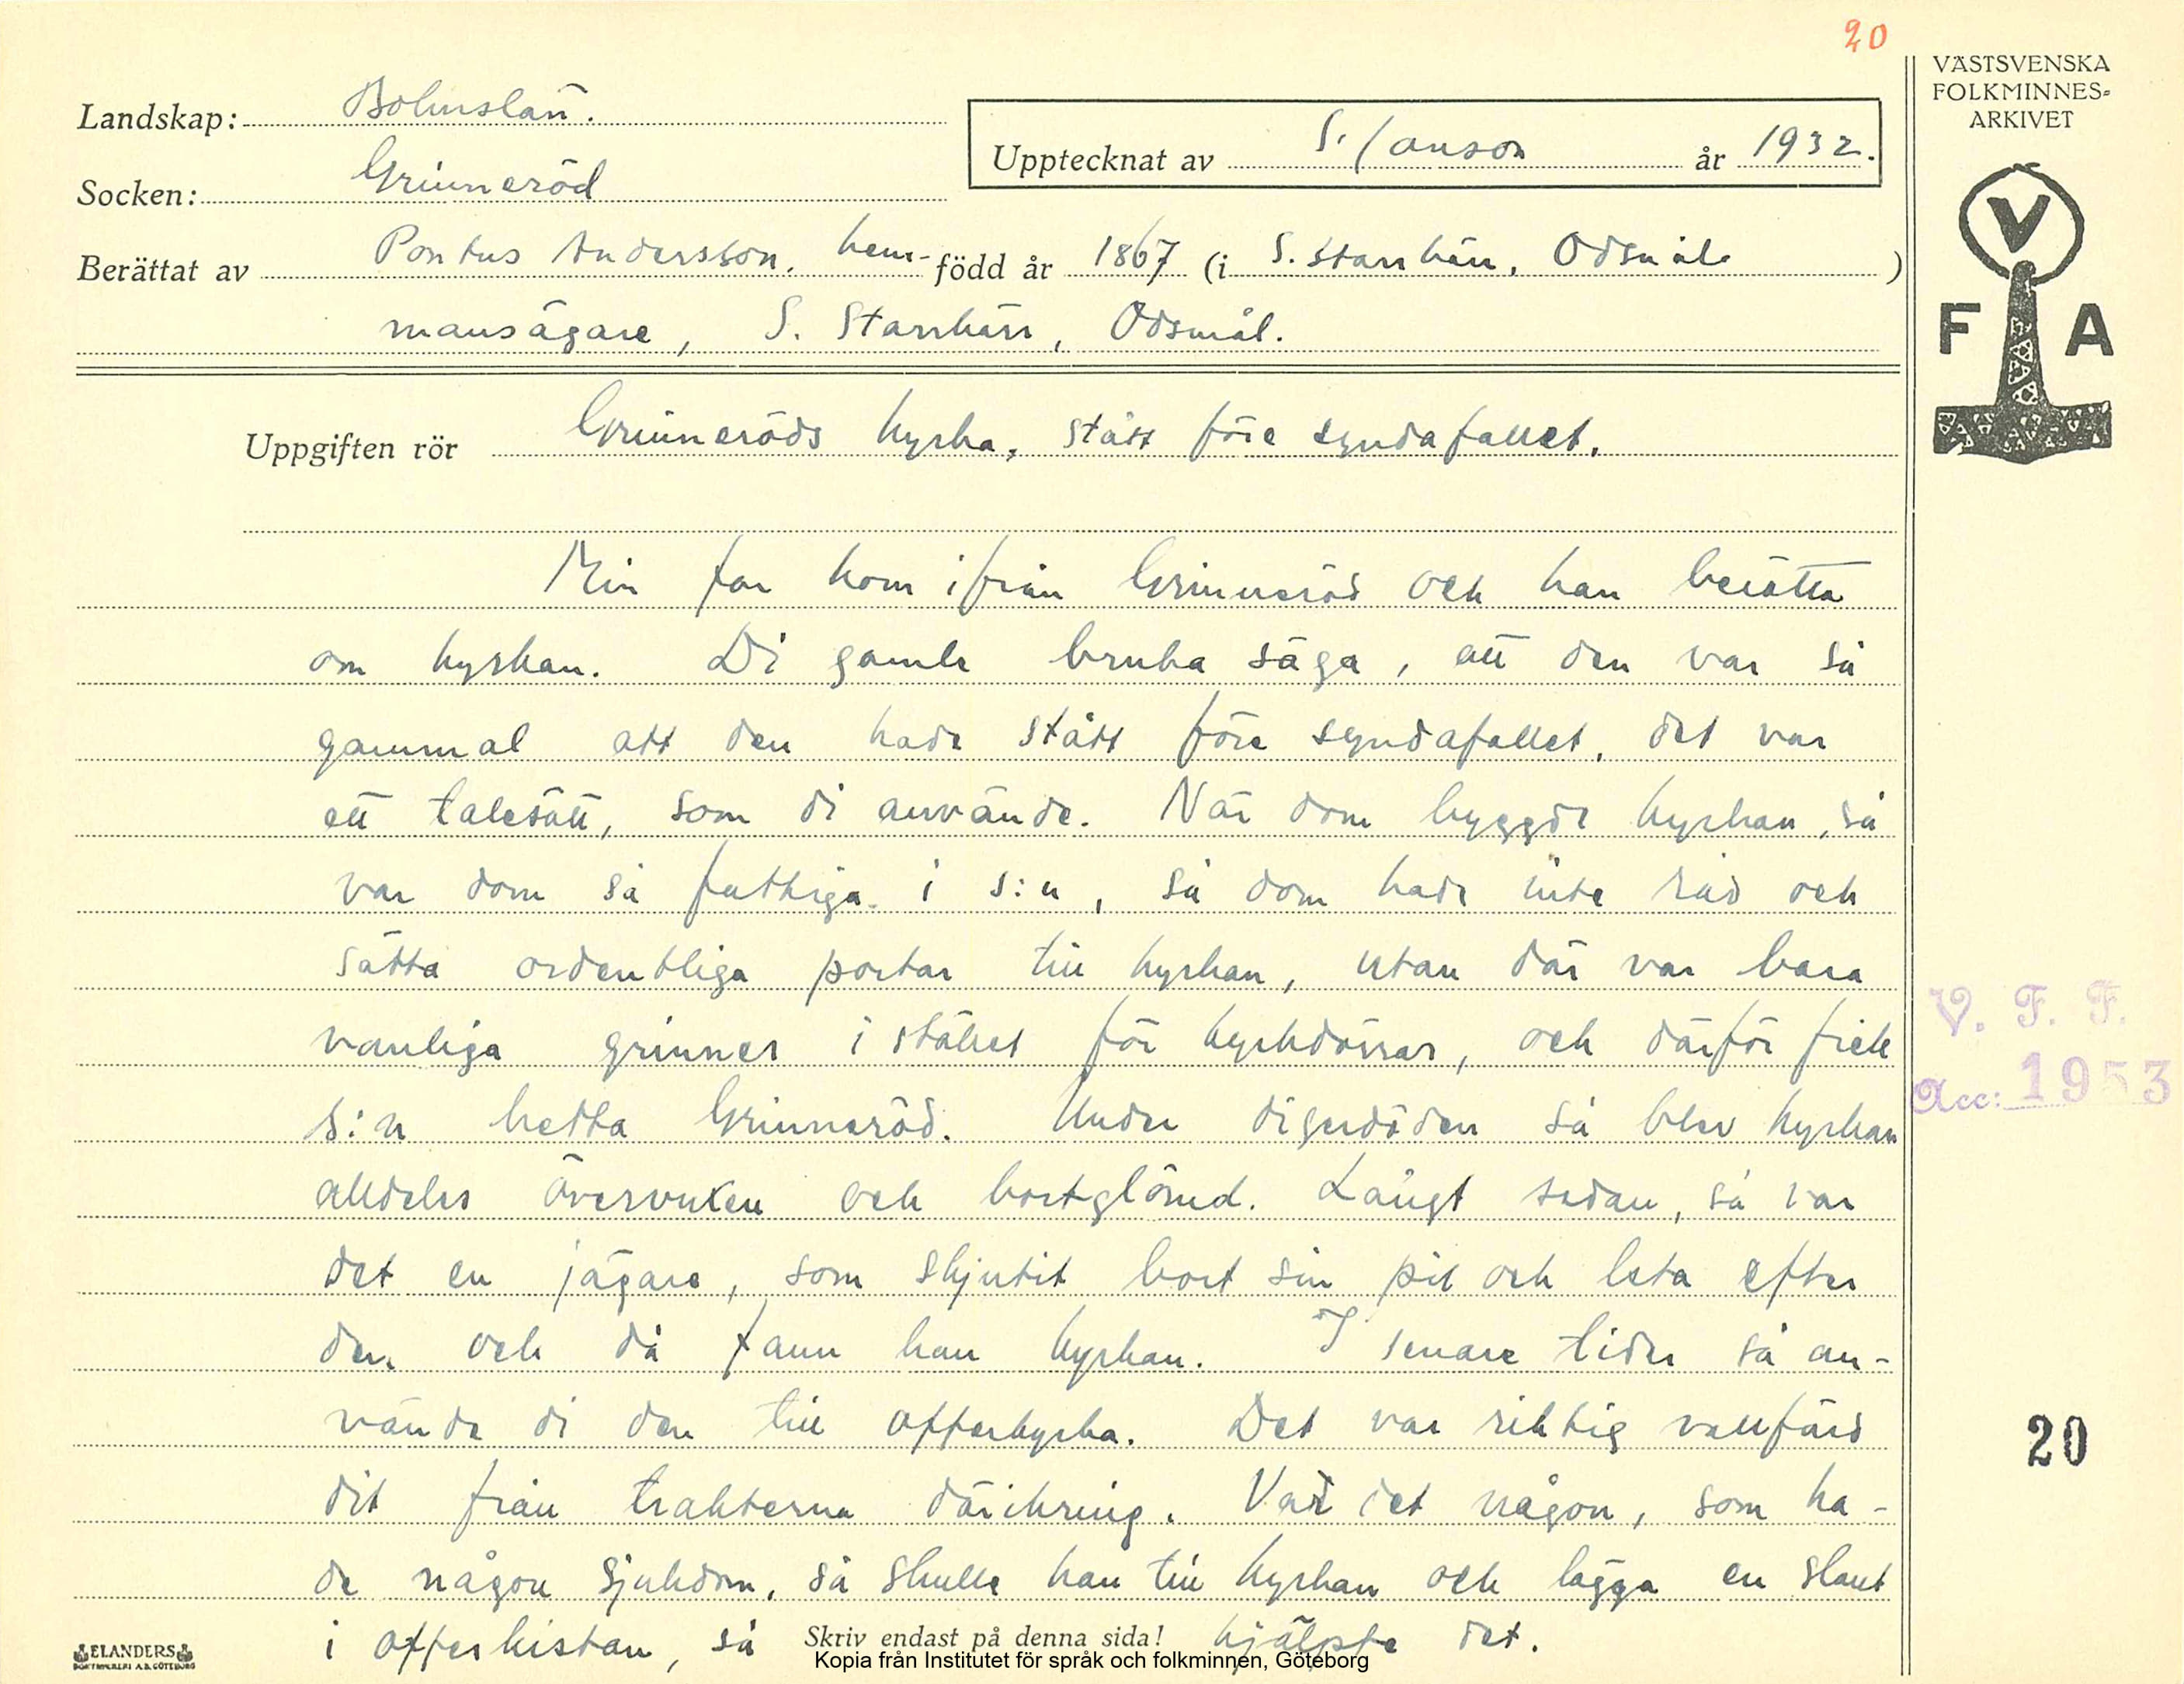 20
VÄSTSVENSKA
FOLKMINNES-
ARKIVET
Landskap: Bohuslän.
Upptecknat av S. Janson år 1932.
Socken: Grinneröd
Berättat av Pontus Andersson, hem- född år 1867 (i S. Starrkärr, Ödsmål )
mansägare, S. Starrkärr, Ödsmål.
V
F A
Uppgiften rör Grinneröds kyrka, stått före syndafallet.
Min far kom ifrån Grinneröd och han berätta
om kyrkan. Di gamle bruka säga, att den var så
gammal att den hade stått före syndafallet, det var
ett talesätt, som di använde. När dom byggde kyrkan, så
var dom så fattiga i s:n, så dom hade inte råd och
sätta ordentliga portar till kyrkan, utan där var bara
vanliga grinner i stället för kyrkdörrar, och därför fick
s:n hetta Grinneröd. Under digerdöden så blev kyrkan
alldeles övervuxen och bortglömd. Långt sedan, så var
det en jägare, som skjutit bort sin pil och leta efter
den och då fann han kyrkan. I senare tider så an-
vände di den till offerkyrka. Det var riktig vallfärd
dit från trakterna däromkring. Var det någon, som ha-
de någon sjukdom, så skulle han till kyrkan och lägga en slant
i offerkistan, så hjälpte det.
Skriv endast på denna sida!
Kopia från Institutet för språk och folkminnen, Göteborg
ELANDERS
BOKTRYCKERI A.B. GÖTEBORG
V. F. F.
Acc: 1953
20